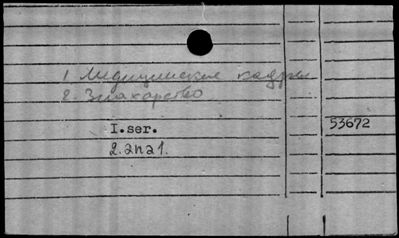 1 Медицинские кадры
2. Знахарство
I.ser. 53672
2.апа1.